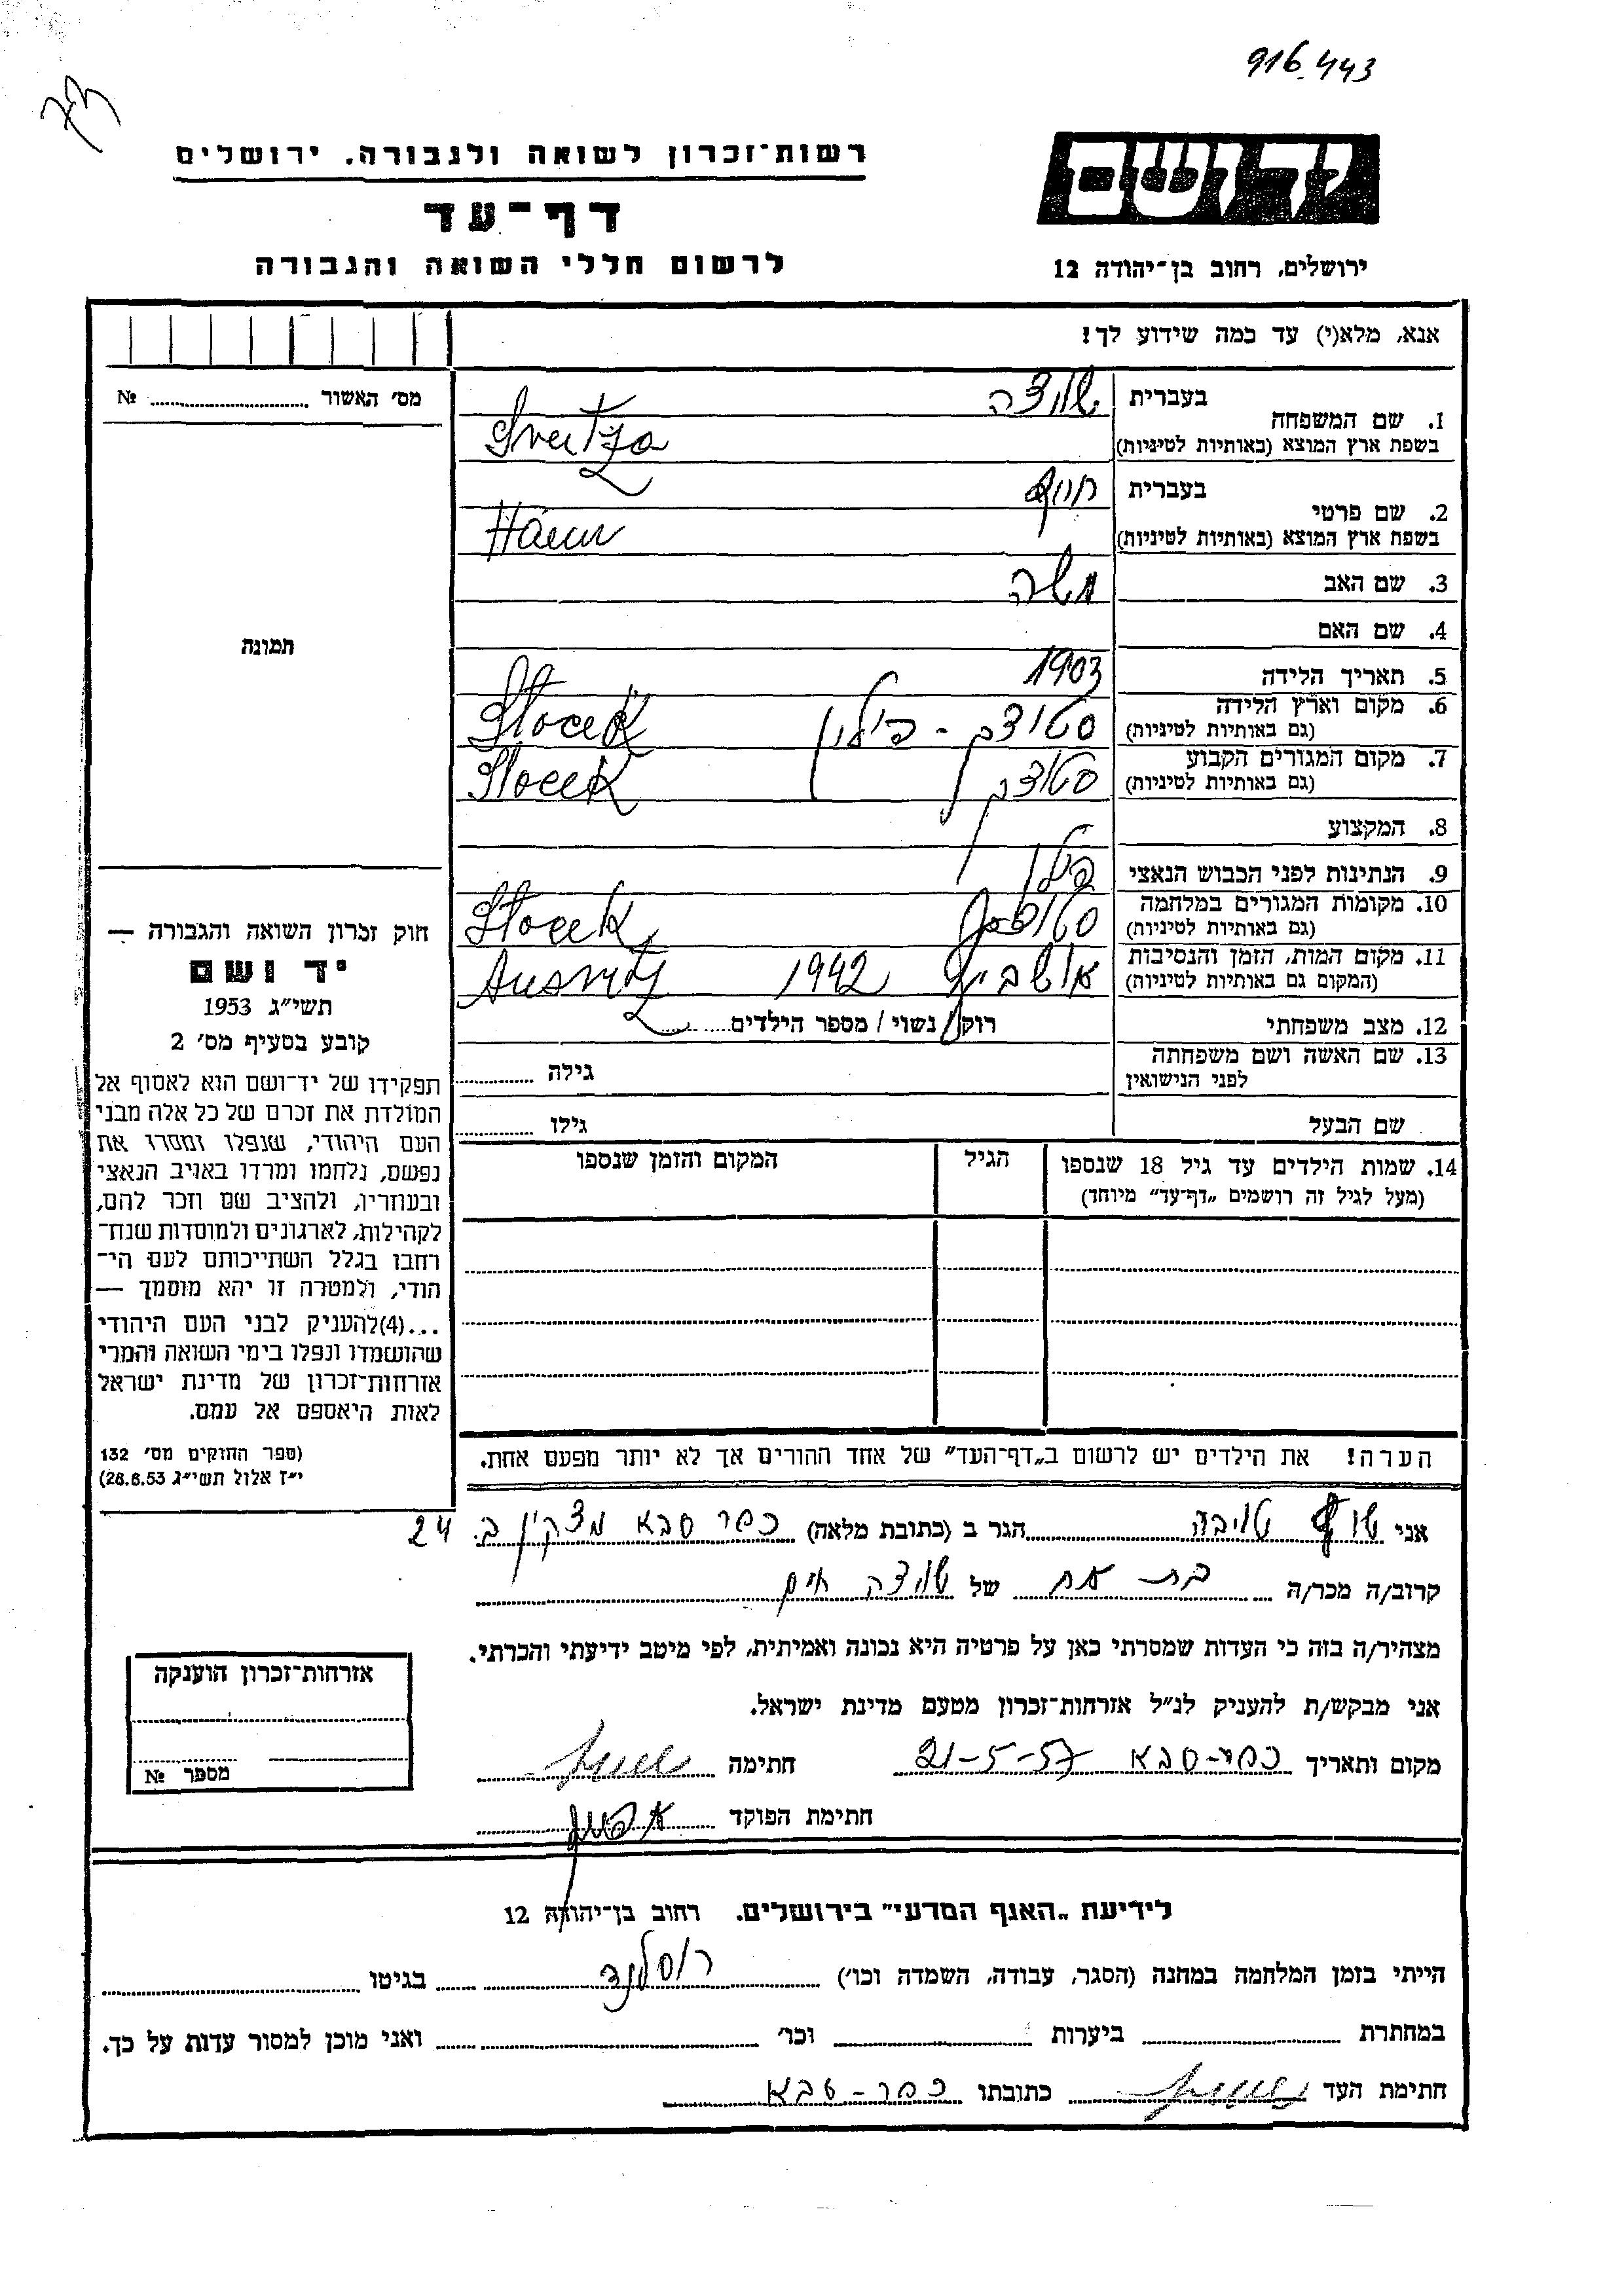 916443
רשות־זכרון לשואה ולגבורה. ירושלים
יד ושם
דף־עד
לרשום חללי השואה והגבורה
ירושלים, רחוב בן־יהודה 12
אנא, מלא(י) עד כמה שידוע לך!
מס' האשור № 
1. שם המשפחה
בעברית
בשפת ארץ המוצא (באותיות לטיניות)
2. שם פרטי
בעברית
בשפת ארץ המוצא (באותיות לטיניות)
3. שם האב משה
4. שם האם
5. תאריך הלידה 1903
6. מקום וארץ הלידה (גם באותיות לטיניות) סטוצק - פולין Stocek
7. מקום המגורים הקבוע (גם באותיות לטיניות) סטוצק Stocek
8. המקצוע
9. הנתינות לפני הכבוש הנאצי פולין
10. מקומות המגורים במלחמה (גם באותיות לטיניות) Stocek
11. מקום המות, הזמן והנסיבות (המקום גם באותיות לטיניות) 1942
12. מצב משפחתי רוק/ נשוי/ מספר הילדים
13. שם האשה ושם משפחתה לפני הנישואין גילה
שם הבעל גילו
14. שמות הילדים עד גיל 18 שנספו
(מעל לגיל זה רושמים „דף־עד" מיוחד)
הגיל
המקום והזמן שנספו
תמונה
חוק זכרון השואה והגבורה —
יד ושם
תשי"ג 1953
קובע בסעיף מס' 2
תפקידו של יד־ושם הוא לאסוף אל
המולדת את זכרם של כל אלה מבני
העם היהודי, שנפלו ומסרו את
נפשם, נלחמו ומרדו באויב הנאצי
ובעוזריו, ולהציב שם וזכר להם,
לקהילות, לארגונים ולמוסדות שנח־
רחבו בגלל השתייכותם לעם הי־
הודי, ולמטרה זו יהא מוסמך —
...(4)להעניק לבני העם היהודי
שהושמדו ונפלו בימי השואה והמרי
אזרחות־זכרון של מדינת ישראל
לאות היאספם אל עמם.
(ספר החוקים מס' 132
י"ז אלול תשי"ג 28.6.53)
הערה! את הילדים יש לרשום ב„דף־העד" של אחד ההורים אך לא יותר מפעם אחת.
אני טובה הגר ב (כתובת מלאה) כפר סבא 24
קרוב/ה מכר/ה בת אח של שוצה חיים
מצהיר/ה בזה כי העדות שמסרתי כאן על פרטיה היא נכונה ואמיתית, לפי מיטב ידיעתי והכרתי.
אני מבקש/ת להעניק לנ"ל אזרחות־זכרון מטעם מדינת ישראל.
מקום ותאריך כפר-סבא 21-5-57 חתימה
חתימת הפוקד
אזרחות־זכרון הוענקה
מספר №
לידיעת „האגף המדעי" בירושלים. רחוב בן־יהודה 12
הייתי בזמן המלחמה במחנה (הסגר, עבודה, השמדה וכו') רוסלנד בגיטו
במחתרת ביערות וכו' ואני מוכן למסור עדות על כך.
חתימת העד כתובתו כפר-סבא